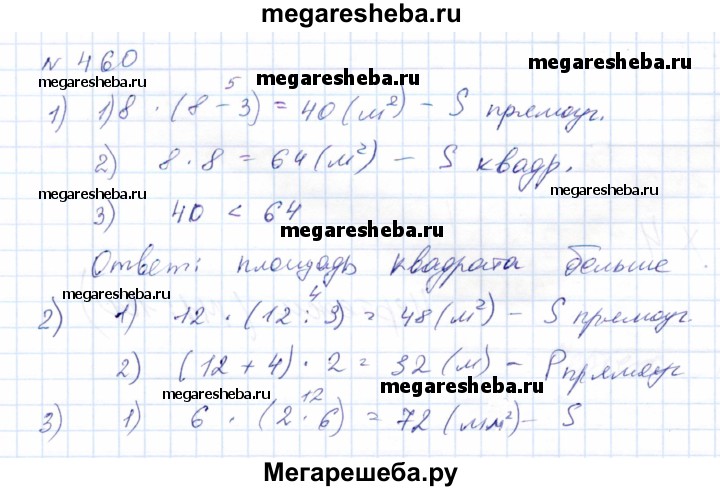 megaresheba.ru
№ 460
megaresheba.ru megaresheba.ru
5
1) 1) 8 · (8 - 3) = 40 (м²) - S прямоуг.
2) 8 · 8 = 64 (м²) - S квадр.
megaresheba.ru megaresheba.ru
3) 40 < 64
megaresheba.ru
Ответ: площадь квадрата больше.
megaresheba.ru 4
2) 1) 12 · (12 : 3) = 48 (м²) - S прямоуг.
2) (12 + 4) · 2 = 32 (м) - P прямоуг
megaresheba.ru 12 megaresheba.ru
3) 1) 6 · (2 · 6) = 72 (мм²) - S
Мегарешеба.ру